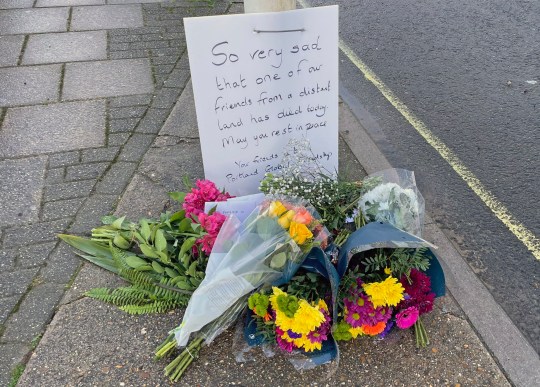 So very sad
that one of our
friends from a distant
land has died today.
May you rest in peace
Your friends
Portland Global